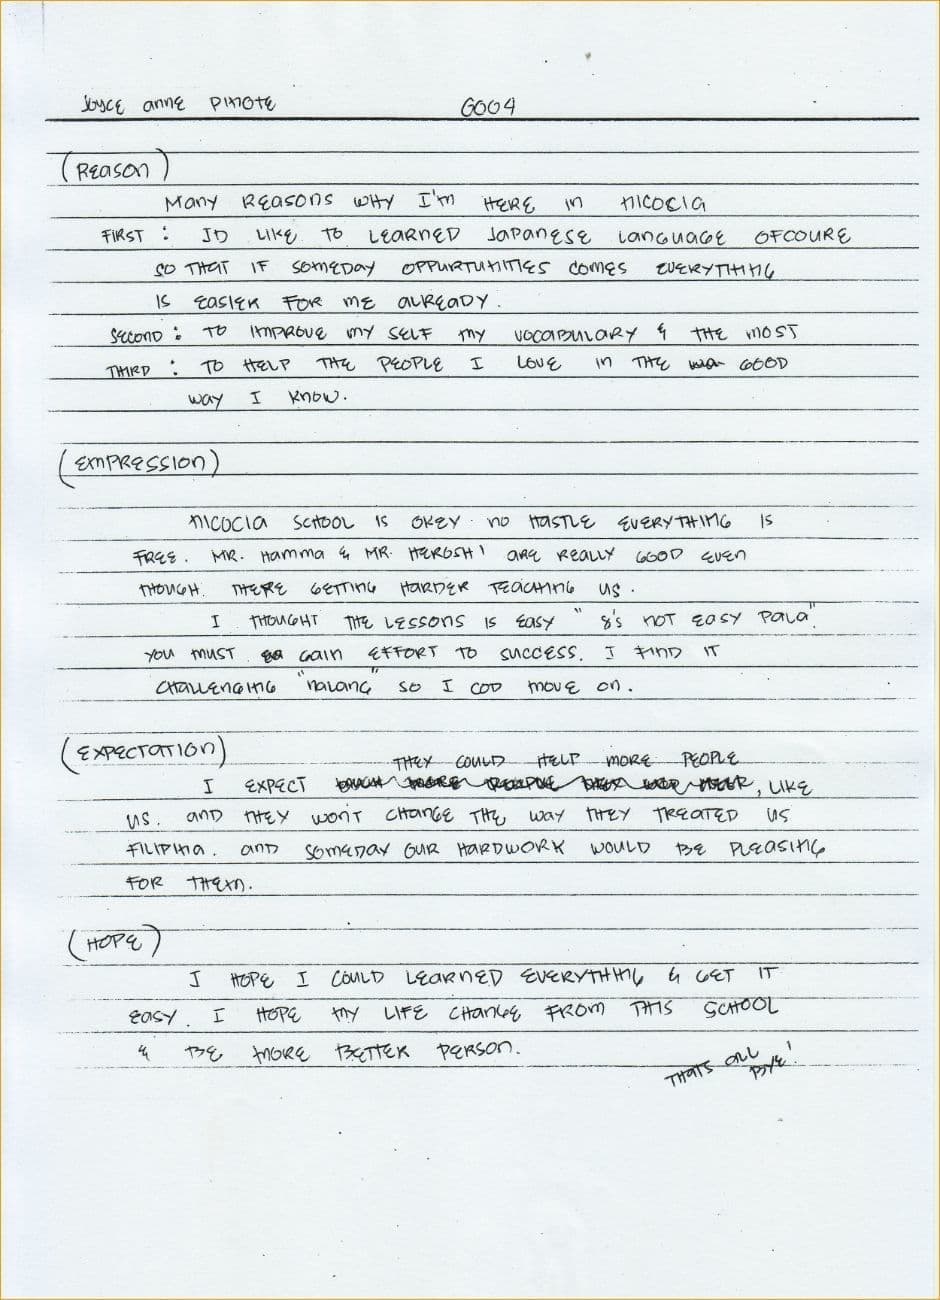 Joyce anne Pinote G004
(Reason)
Many Reasons why I'm here in Nicocia
First : I'D like to learned Japanese Language ofcoure
so that if someday oppurtunities comes everything
is easier for me already.
Second : to improve my self my vocabulary & the most
Third : to help the people I love in the good
way I know.
(Empression)
Nicocia school is okey. no hastle everything is
free. Mr. Hamma & Mr. Heroshi are really good even
though. there getting harder teaching us.
I thought the lessons is easy " is not easy pala".
you must gain effort to success. I find it
challenging "nalang" so I cod move on.
(Expectation)
They could help more people
I expect , like
us. and they wont change the way they treated us
Filipina. and someday our hardwork would be pleasing
for them.
(Hope)
I hope I could learned everything & get it
easy. I hope my life change from this school
& be more better person.
Thats all
Bye!